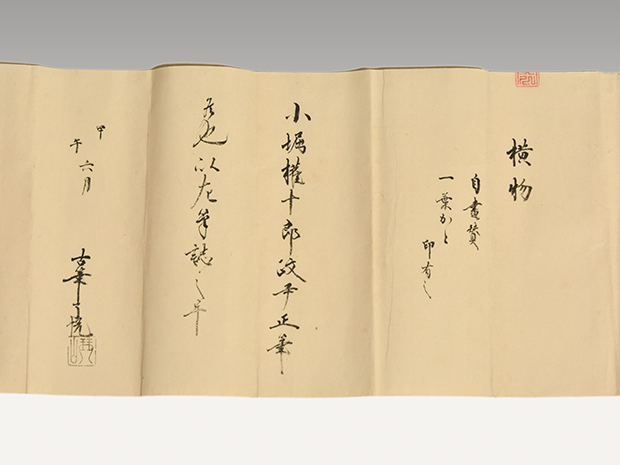 横物
自畫賛
一葉かと
印有之
小堀權十郎政尹正筆
者也以左筆誌之
甲
午六月
古筆了悦